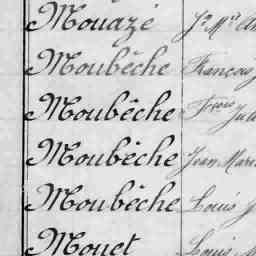 Mouazé Jn Mie
Moubêche François
Moubêche Frçois Jul
Moubêche Jean Mari
Moubêche Louis J
Mouet Louis